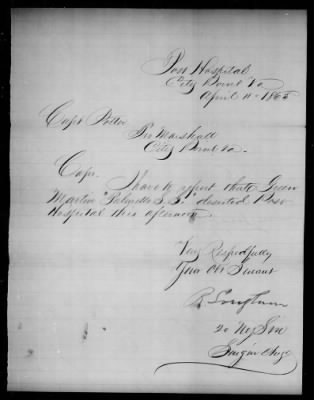 Post Hospital
City Point Va
April 11 1865
Capt Potter
Pro Marshall
City Point Va.
Capt.
I have to report that Green
Martin "Palmetto S.S." deserted Post
Hospital this afternoon.
Very Respectfully
Your Obt Servant
20 Ny